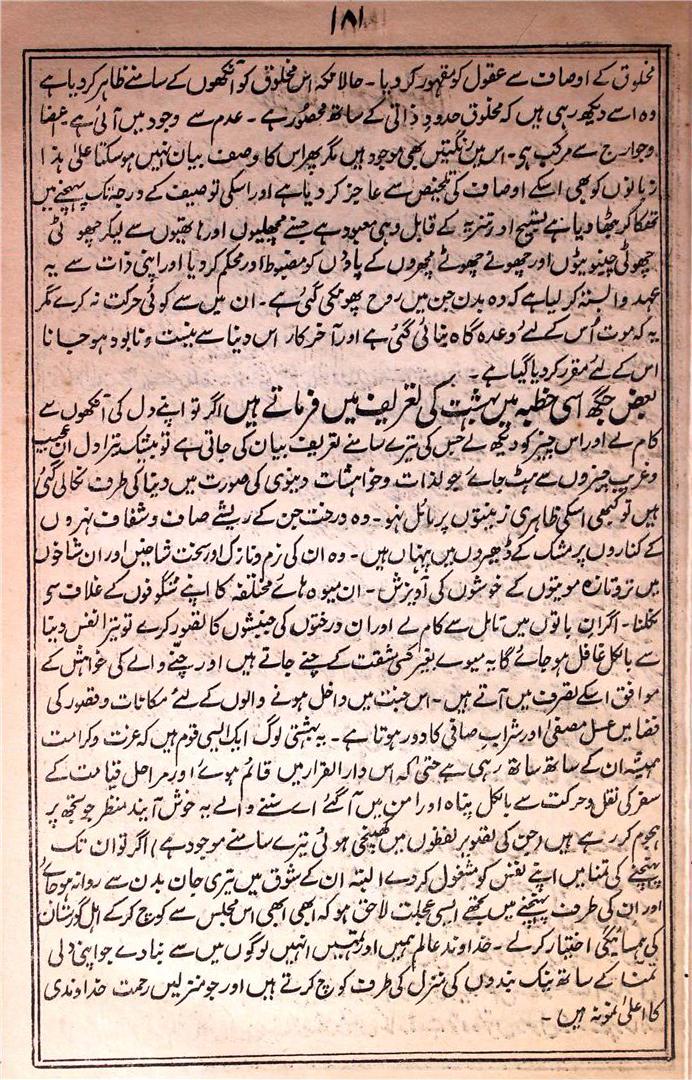 ۱۸۱
مخلوق کے اوصاف سے عقول کو مقہور کر دیا ۔ حالانکہ اس مخلوق کو آنکھوں کے سامنے ظاہر کر دیا ہے
وہ اسے دیکھ رہی ہیں کہ مخلوق حدود ذاتی کے ساتھ محصور ہے ۔ عدم سے وجود میں آئی ہے اعضا
وجوارح سے مرکب ہی ۔ اس میں رنگتیں بھی موجود ہیں مگر پھر اس کا وصف بیان نہیں ہو سکتا علیٰ ہذا
زبانوں کو بھی اسکے اوصاف کی تلخیص سے عاجز کر دیا ہے اور اسکی توصیف کے درجہ تک پہنچنے میں
تھکا کر بٹھا دیا ہے تسبیح اور تنزیہ کے قابل وہی معبود ہے جسنے مچھلیوں اور ہاتھیوں سے لیکر چھوٹی
چھوٹی چیونٹیوں اور چھوٹے چھوٹے مچھروں کے پاؤں کو مضبوط اور محکم کر دیا اور اپنی ذات سے یہ
عہد وابستہ کر لیا ہے کہ وہ بدن جن میں روح پھونکی گئی ہے ۔ ان میں سے کوئی حرکت نہ کرے مگر
یہ کہ موت اُس کے لئے وعدہ گاہ بنائی گئی ہے اور آخر کار اس دنیا سے نیست و نابود ہو جانا
اس کے لئے مقرر کر دیا گیا ہے ۔
بعض جگھ اسی خطبہ میں بہشت کی تعریف میں فرماتے ہیں اگر تو اپنے دل کی آنکھوں سے
کام لے اور اس چیز کو دیکھ لے جس کی تیرے سامنے تعریف بیان کی جاتی ہے تو بیشک تیرا دل ان عجیب
و غریب چیزوں سے ہٹ جائے جو لذات و خواہشات دنیوی کی صورت میں دنیا کی طرف نکالی گئی
ہیں تو کبھی اسکی ظاہری زینتوں پر مائل نہو ۔ وہ درخت جن کے ریشے صاف و شفاف نہروں
کے کناروں پر مشک کے ڈھیروں میں پنہاں ہیں ۔ وہ ان کی نرم و نازک اور سخت شاخیں اور ان شاخوں
میں تر و تازہ موتیوں کے خوشوں کی آویزش ۔ ان میوہ ہائے مختلفہ کا اپنے شگوفوں کے غلاف سے
نکلنا ۔ اگر ان باتوں میں تامل سے کام لے اور ان درختوں کی جنبشوں کا تصور کرے تو تیرا نفس دنیا
سے بالکل غافل ہو جائے گا یہ میوے بغیر کسی مشقت کے چنے جاتے ہیں اور چننے والے کی خواہش کے
موافق اسکے تصرف میں آتے ہیں ۔ اس جنت میں داخل ہونے والوں کے لئے مکانات و قصور کی
فضا میں عسل مصفی اور شراب صافی کا دور ہوتا ہے ۔ یہ بہشتی لوگ ایک ایسی قوم ہیں کہ عزت و کرامت
ہمیشہ ان کے ساتھ ساتھ رہی ہے حتیٰ کہ اس دار القرار میں قائم ہوئے اور مراحل قیامت کے
سفر کی نقل و حرکت سے بالکل پناہ اور امن میں آ گئے اے سننے والے یہ خوش آیند منظر جو تجھ پر
ہجوم کر رہے ہیں (جن کی تصویر لفظوں میں کھینچی ہوئی تیرے سامنے موجود ہے) اگر تو ان تک
پہنچنے کی تمنا میں اپنے نفس کو مشغول کر دے البتہ ان کے شوق میں تیری جان بدن سے روانہ ہو جائے
اور ان کی طرف پہنچنے میں تجھے ایسی عجلت لاحق ہو کہ ابھی ابھی اس مجلس سے کوچ کر کے اہل گورستان
کی ہمسائیگی اختیار کر لے ۔ خداوند عالم ہمیں اور تمہیں انہیں لوگوں میں سے بنا دے جو اپنی دلی
تمنا کے ساتھ نیک بندوں کی منزل کی طرف کوچ کرتے ہیں اور جو منزلیں رحمت خداوندی
کا اعلیٰ نمونہ ہیں ۔